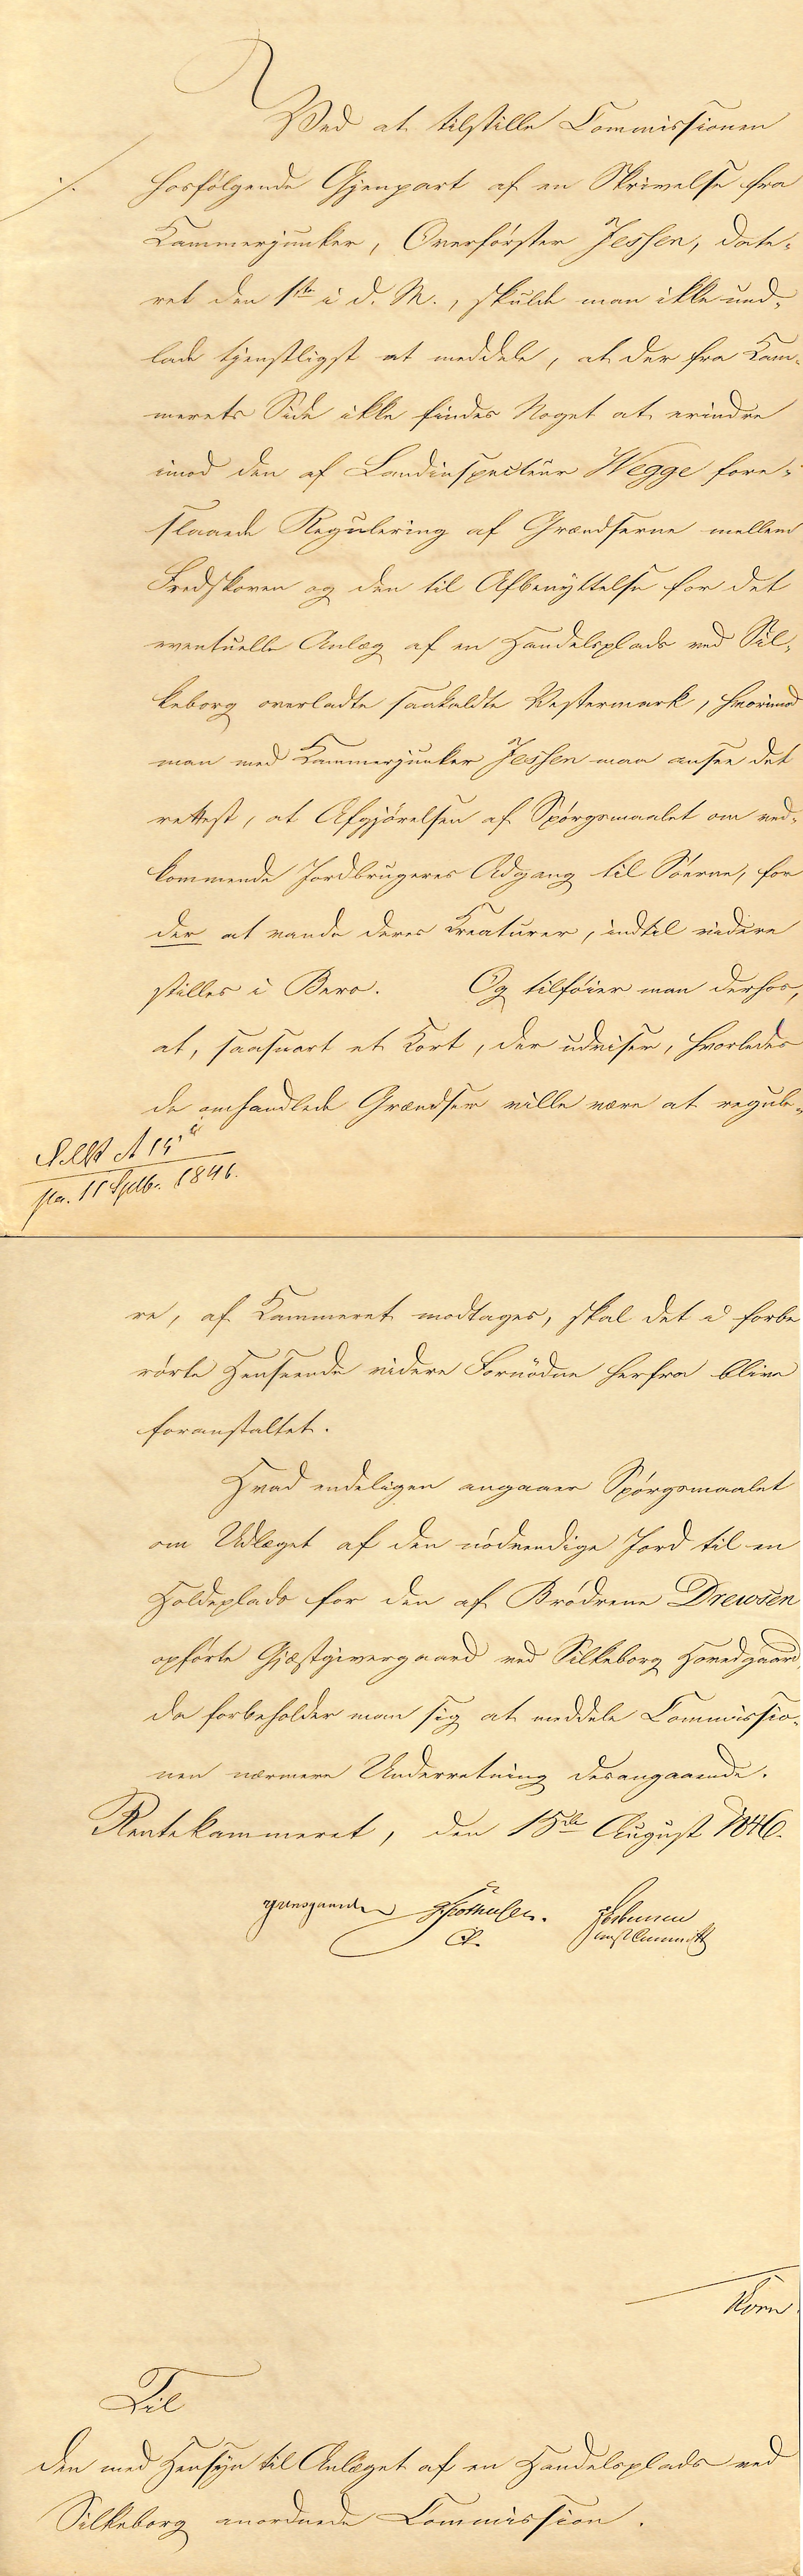 Ved at tilstille Commissionen
./. hosfölgende Gjenpart af en Skrivelse fra
Kammerjunker, Overförster Jessen, date-
ret den 1ste i d. M., skulde man ikke und-
lade tjenstligst at meddele, at der fra Kam-
merets Side ikke findes Noget at erindre
imod den af Landinspecteur Wegge fore-
slaaede Regulering af Grændserne mellem
Fredskoven og den til Afbenyttelse for det
eventuelle Anlæg af en Handelsplads ved Sil-
keborg overladte saakaldte Vestermark, hvorimod
man med Kammerjunker Jessen maa ansee det
rettest, at Afgjörelsen af Spörgsmaalet om ved-
kommende Jordbrugeres Adgang til Söerne, for
der at vande deres Kreaturer, indtil videre
stilles i Bero. Og tilföier man derhos,
at, saasnart et Kort, der udviser, hvorledes
de omhandlede Grændser ville være at regule-
11 Septbr. 1846.
re, af Kammeret modtages, skal det i forbe
rörte Henseende videre Fornödne herfra blive
foranstaltet.
Hvad endeligen angaaer Spörgsmaalet
om Udlæget af den nödvendige Jord til en
Holdeplads for den af Brödrene Drewsen
opförte Gjæstgivergaard ved Silkeborg Hovedgaard,
da forbeholder man sig at meddele Commissio-
nen nærmere Underretning desangaaende.
Rentekammeret, den 15de August 1846.
Til
den med Hensyn til Anlæget af en Handelsplads ved
Silkeborg anordnede Commission.